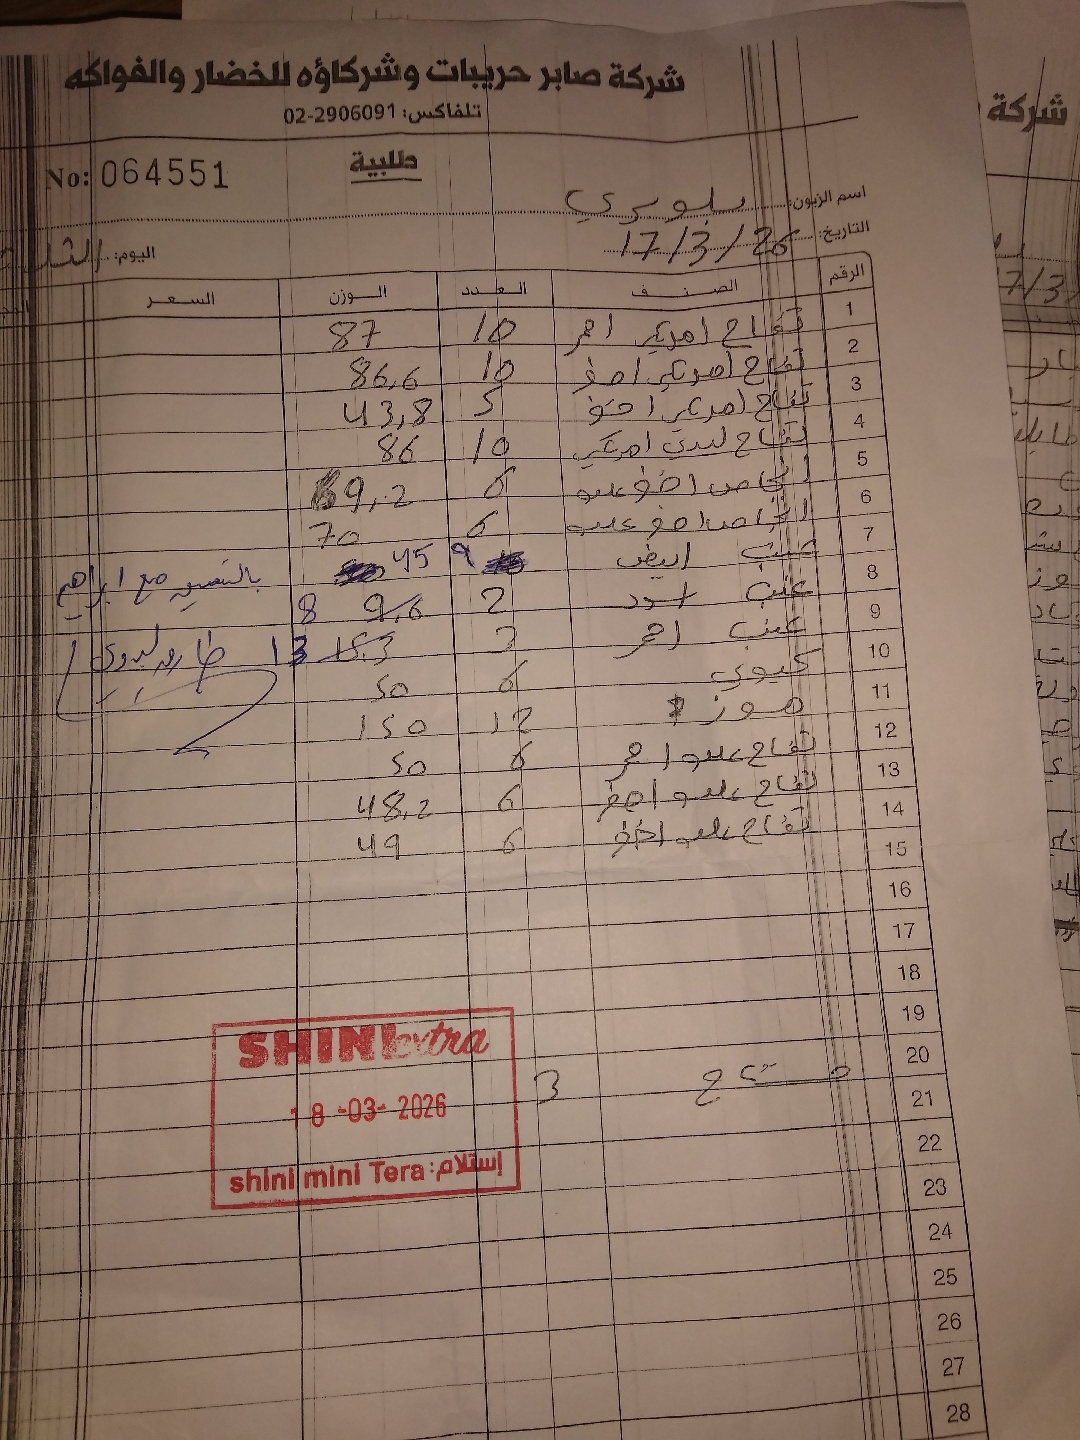 شركة صابر حريبات وشركاؤه للخضار والفواكه
تلفاكس: 02-2906091
طلبية
No: 064551
اسم الزبون:
التاريخ: 17/3/26
اليوم: الثلا
الرقم الصنف العدد الوزن السعر
1 تفاح امريكي احمر 10 87
2 تفاح امريكي اصفر 10 86,6
3 تفاح امريكي اخضر 5 43,8
4 تفاح ليدي امريكي 10 86
5 انجاص اخضر علب 6 69,2
6 انجاص اصفر علب 6 70
7 عنب ابيض 9 45 بالتنسيق مع ابراهيم
8 عنب اسود 2 9,6 8
9 عنب احمر 3 15,3 13
10 كيوي 6 50
11 موز 12 150
12 تفاح علب احمر 6 50
13 تفاح علب اصفر 6 48,2
14 تفاح علب اخضر 6 49
15
16
17
18
19
20
21 3
22
23
24
25
26
27
28
SHINI extra
18-03-2026
shini mini Tera :إستلام
شركة